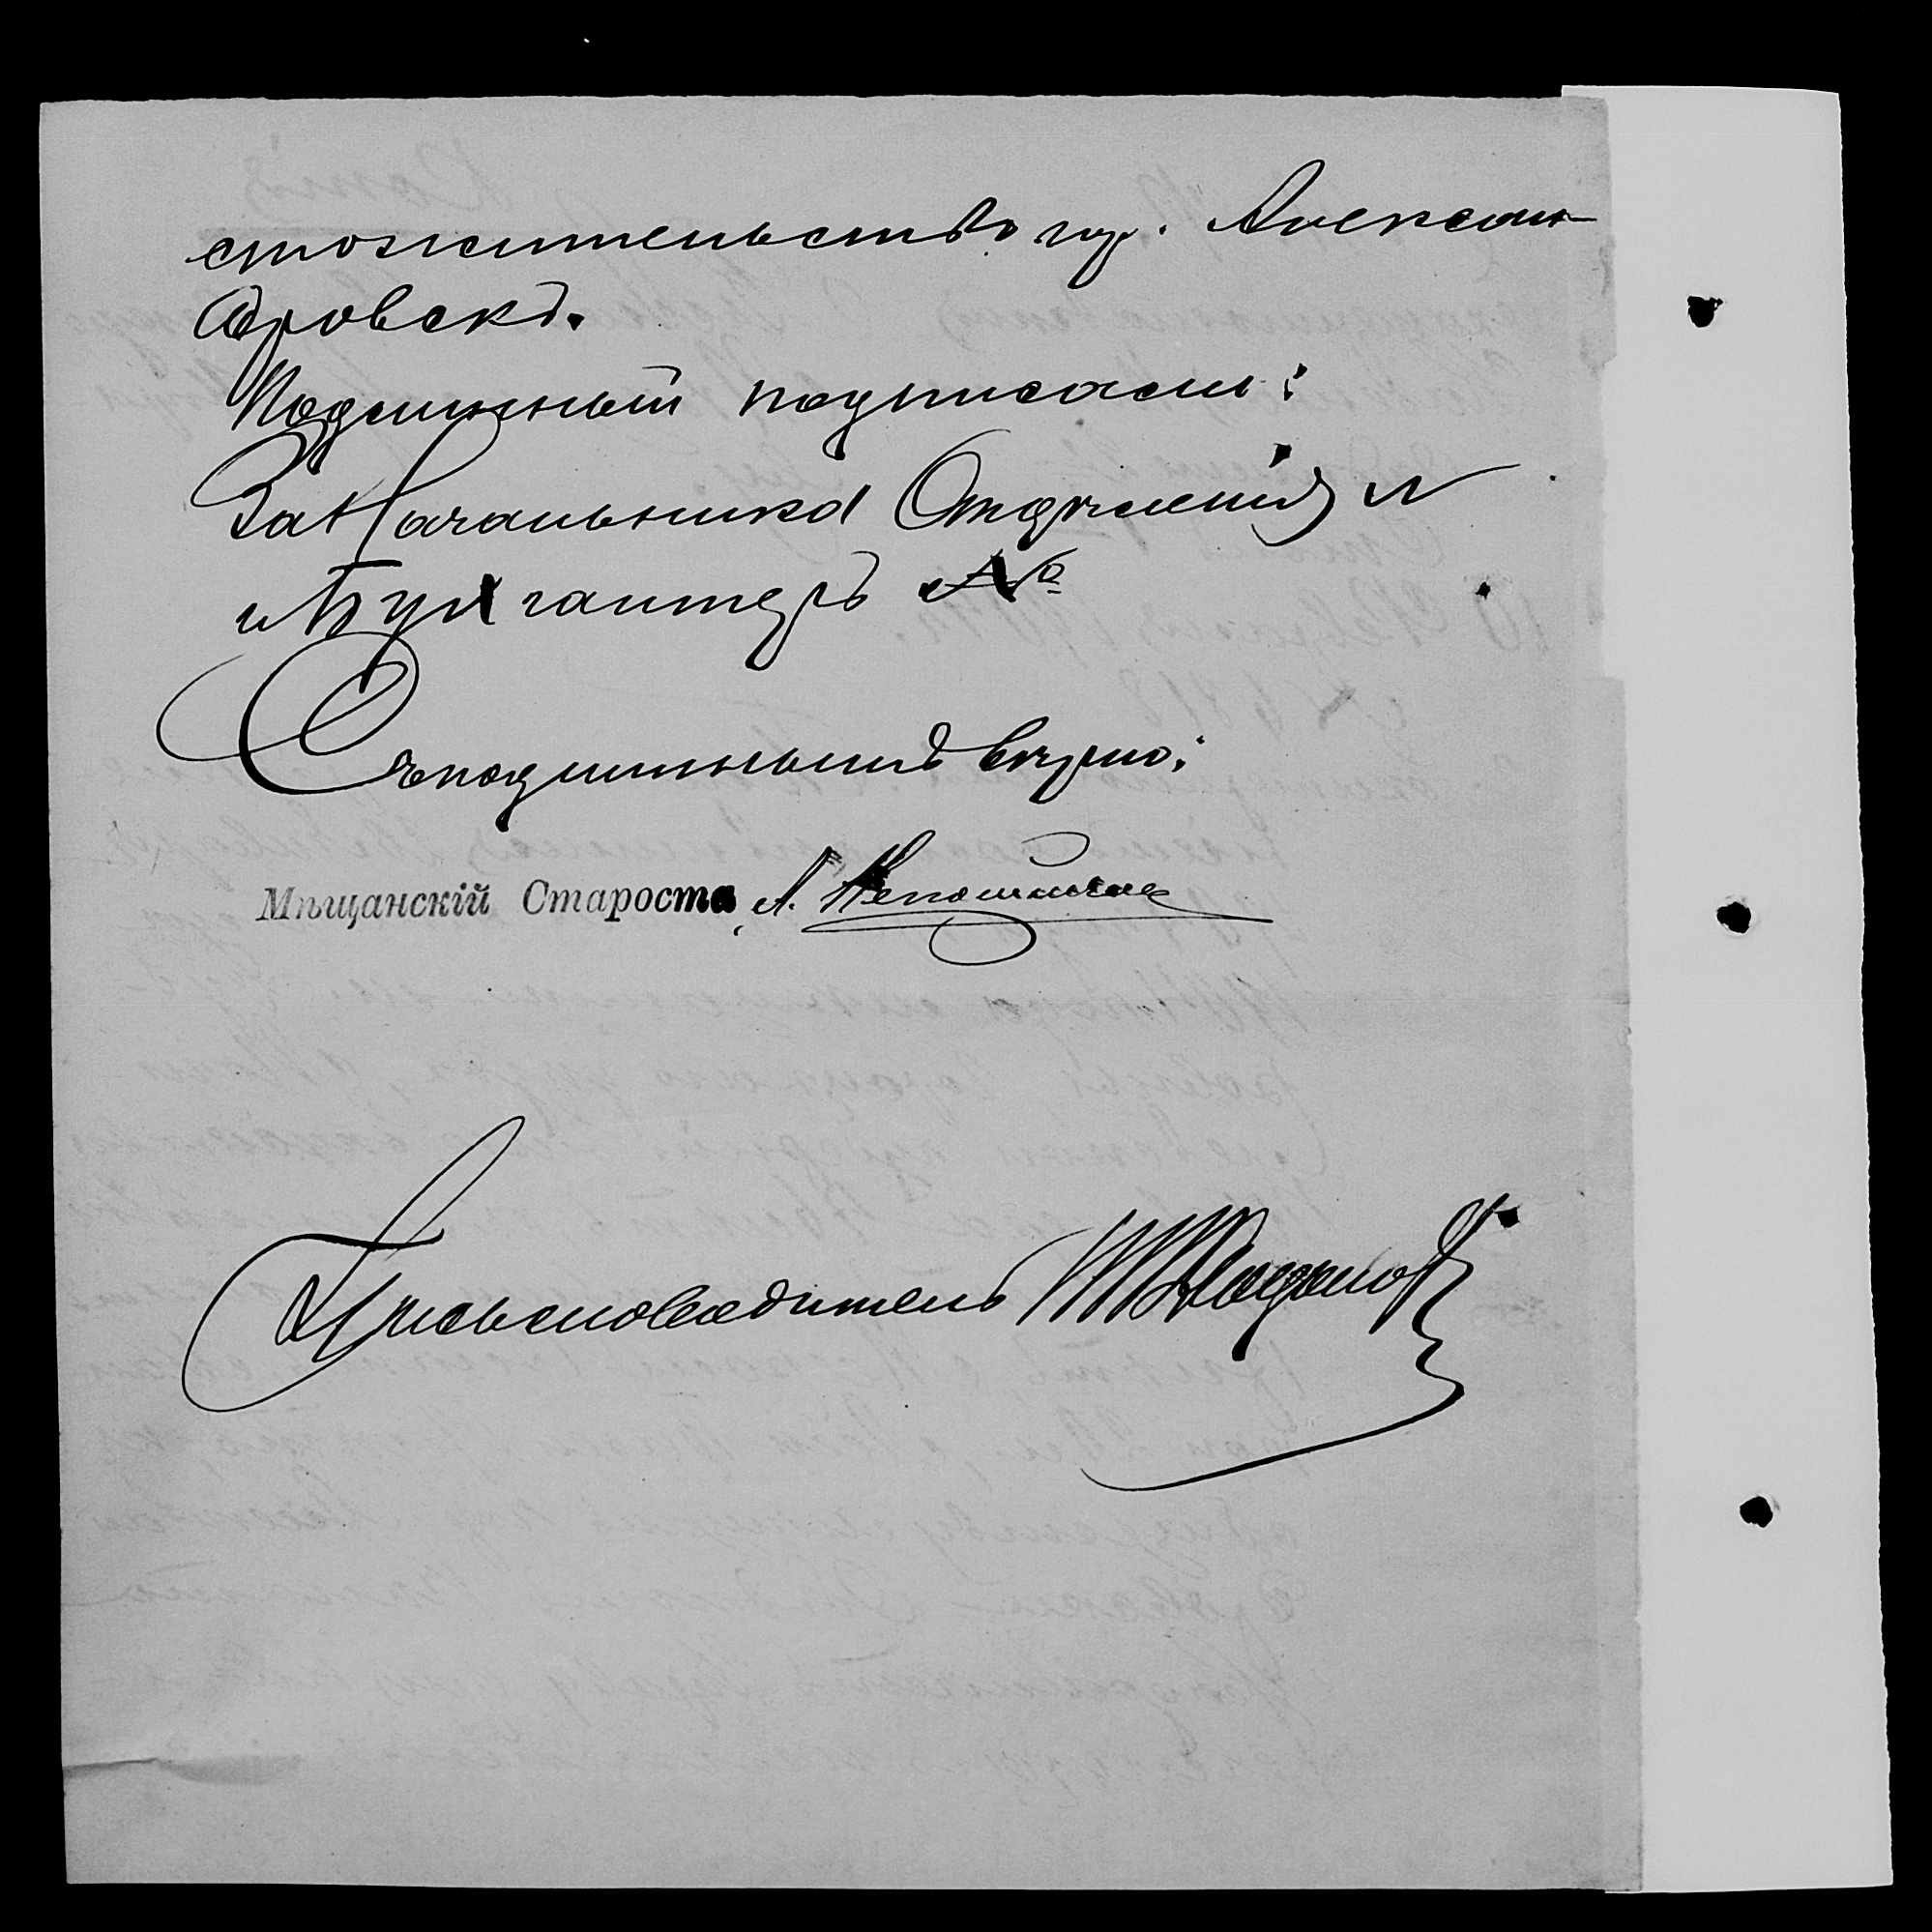 стожительство гор. Алексан-
дровскъ.
Подлинный подписали:
За Начальника Отдѣленія и
Бухгалтеръ
Съ подлиннымъ вѣрно:
Мѣщанскій Староста А.
Письмоводитель